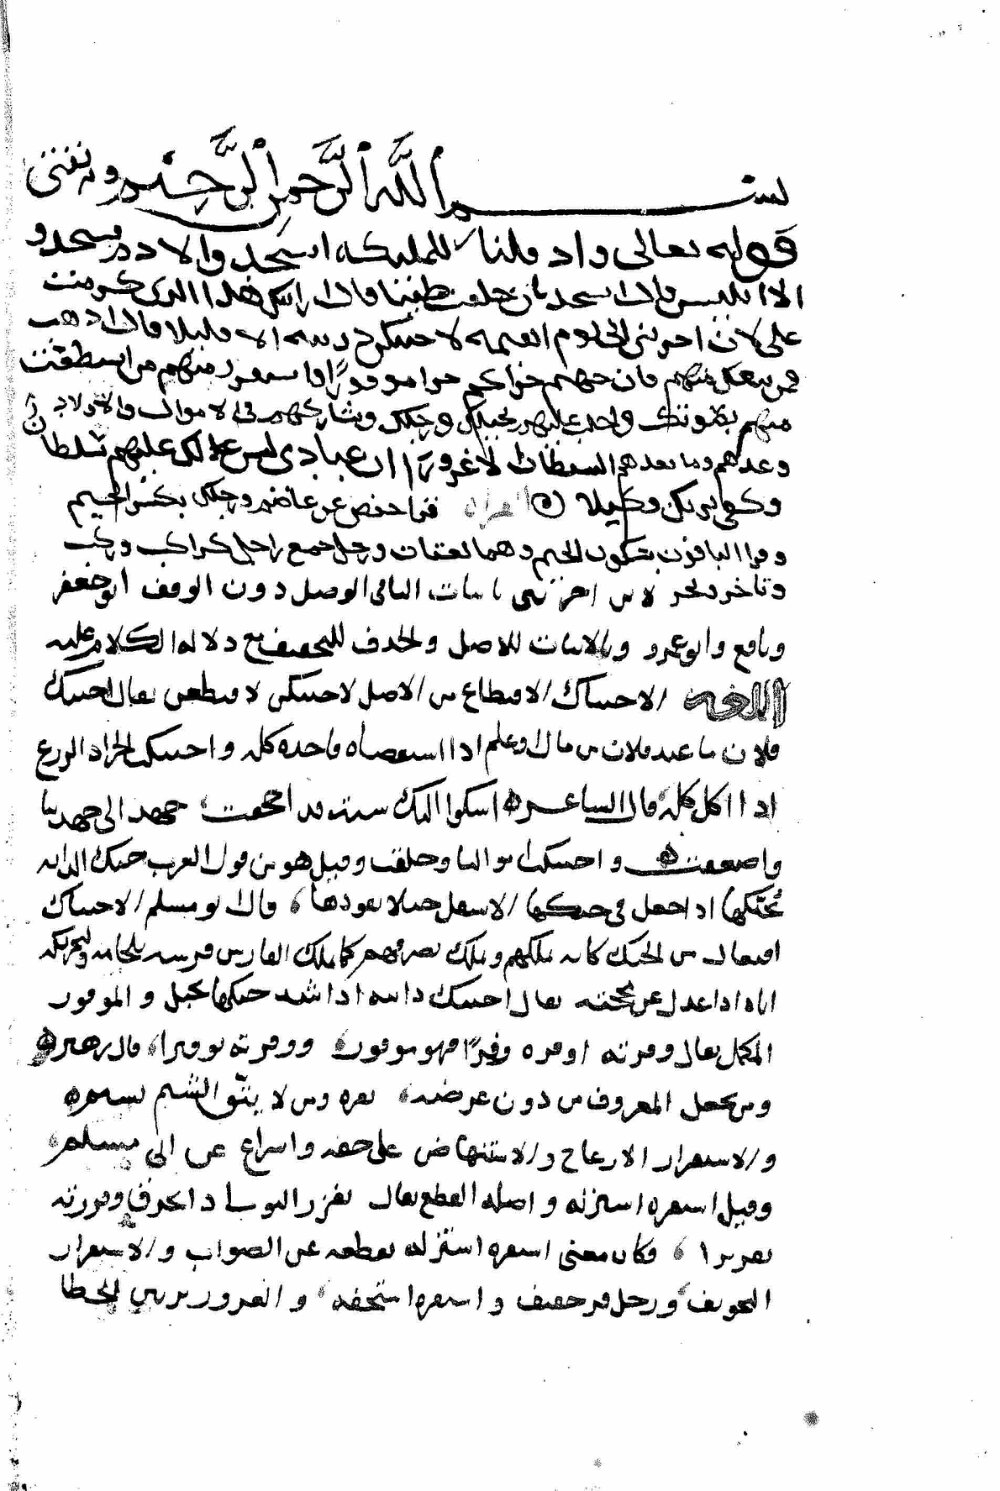 بسم الله الرحمن الرحيم وبه نقتي
قوله تعالى واد قلنا للمليكه اسجدوا لادم فسجدو
الا ابليس قال اسجد لمن خلقت طينا قال ارايتك هدا الدي كرمت
علي لان اخرتني الى يوم القيمه لاحتنكن دريته الا قليلا قال ادهب
فمن تبعك منهم فان جهنم جزاكم جزا موفورًا واستفزز منهم من استطعت
منهم بصوتك واجلب عليهم بخيلك ورجلك وشاركهم في الاموال والاولاد
وعدهم وما يعدهم الشيطان الا غرورًا ان عبادي ليس لك عليهم سلطان
وكفى بربك وكيلا القراه قرا حفص عن عاصم ورجلك بكسر الجيم
وقرا الباقون بسكون الجيم وهما لغتان ورجل جمع راجل كراكب وركب
وتاخر وتجر لان اخرتني باثبات اليا في الوصل دون الوقف ابو جعفر
ونافع وابو عمرو وبالاثبات للاصل والحدف للتخفيف مع دلاله الكلام عليه
اللغه الاحتناك الاقتطاع من الاصل لاحتنكن لاقتطعن يقال احتنك
فلان ما عند فلان من مال وعلم ادا استقصاه واخده كله واحتنك الجراد الزرع
ادا اكل كله قال الشاعر اشكوا اليك سنة قد اجحفت جهدا الى جهد بنا
واضعفت واحتنكت اموالنا وجلفت وقيل هو من قول العرب حنك الدابه
يُحنّكها ادا جعل في حنكها الاسفل حبلا يقودها قال ابو مسلم الاحتناك
افتعال من الحنك كانه يملكهم ويملك تصرفهم كما يملك الفارس فرسه بلجامه
اياه ادا عدل عن محجته يقال احتنك دابته ادا شد حنكها بحبل والموفور
المكمل يقال وفرته اوفره وفرًا فهو موفور ووفرته توفيرا قال زهير
ومن يجعل المعروف من دون عرضه يفره ومن لا يتّق الشتم يشتم
والاستفزاز الازعاج والاستنهاض على خفه واسراع عن ابي مسلم
وقيل استفزه استزله واصله القطع يقال تفزز الثوب ادا انخرق وفززته
تفزيزا فكان معنى استفزه استزله بقطعه عن الصواب والاستفزاز
التخويف ورجل فز خفيف واستفزه استخفه والغرور تزيين الخطا